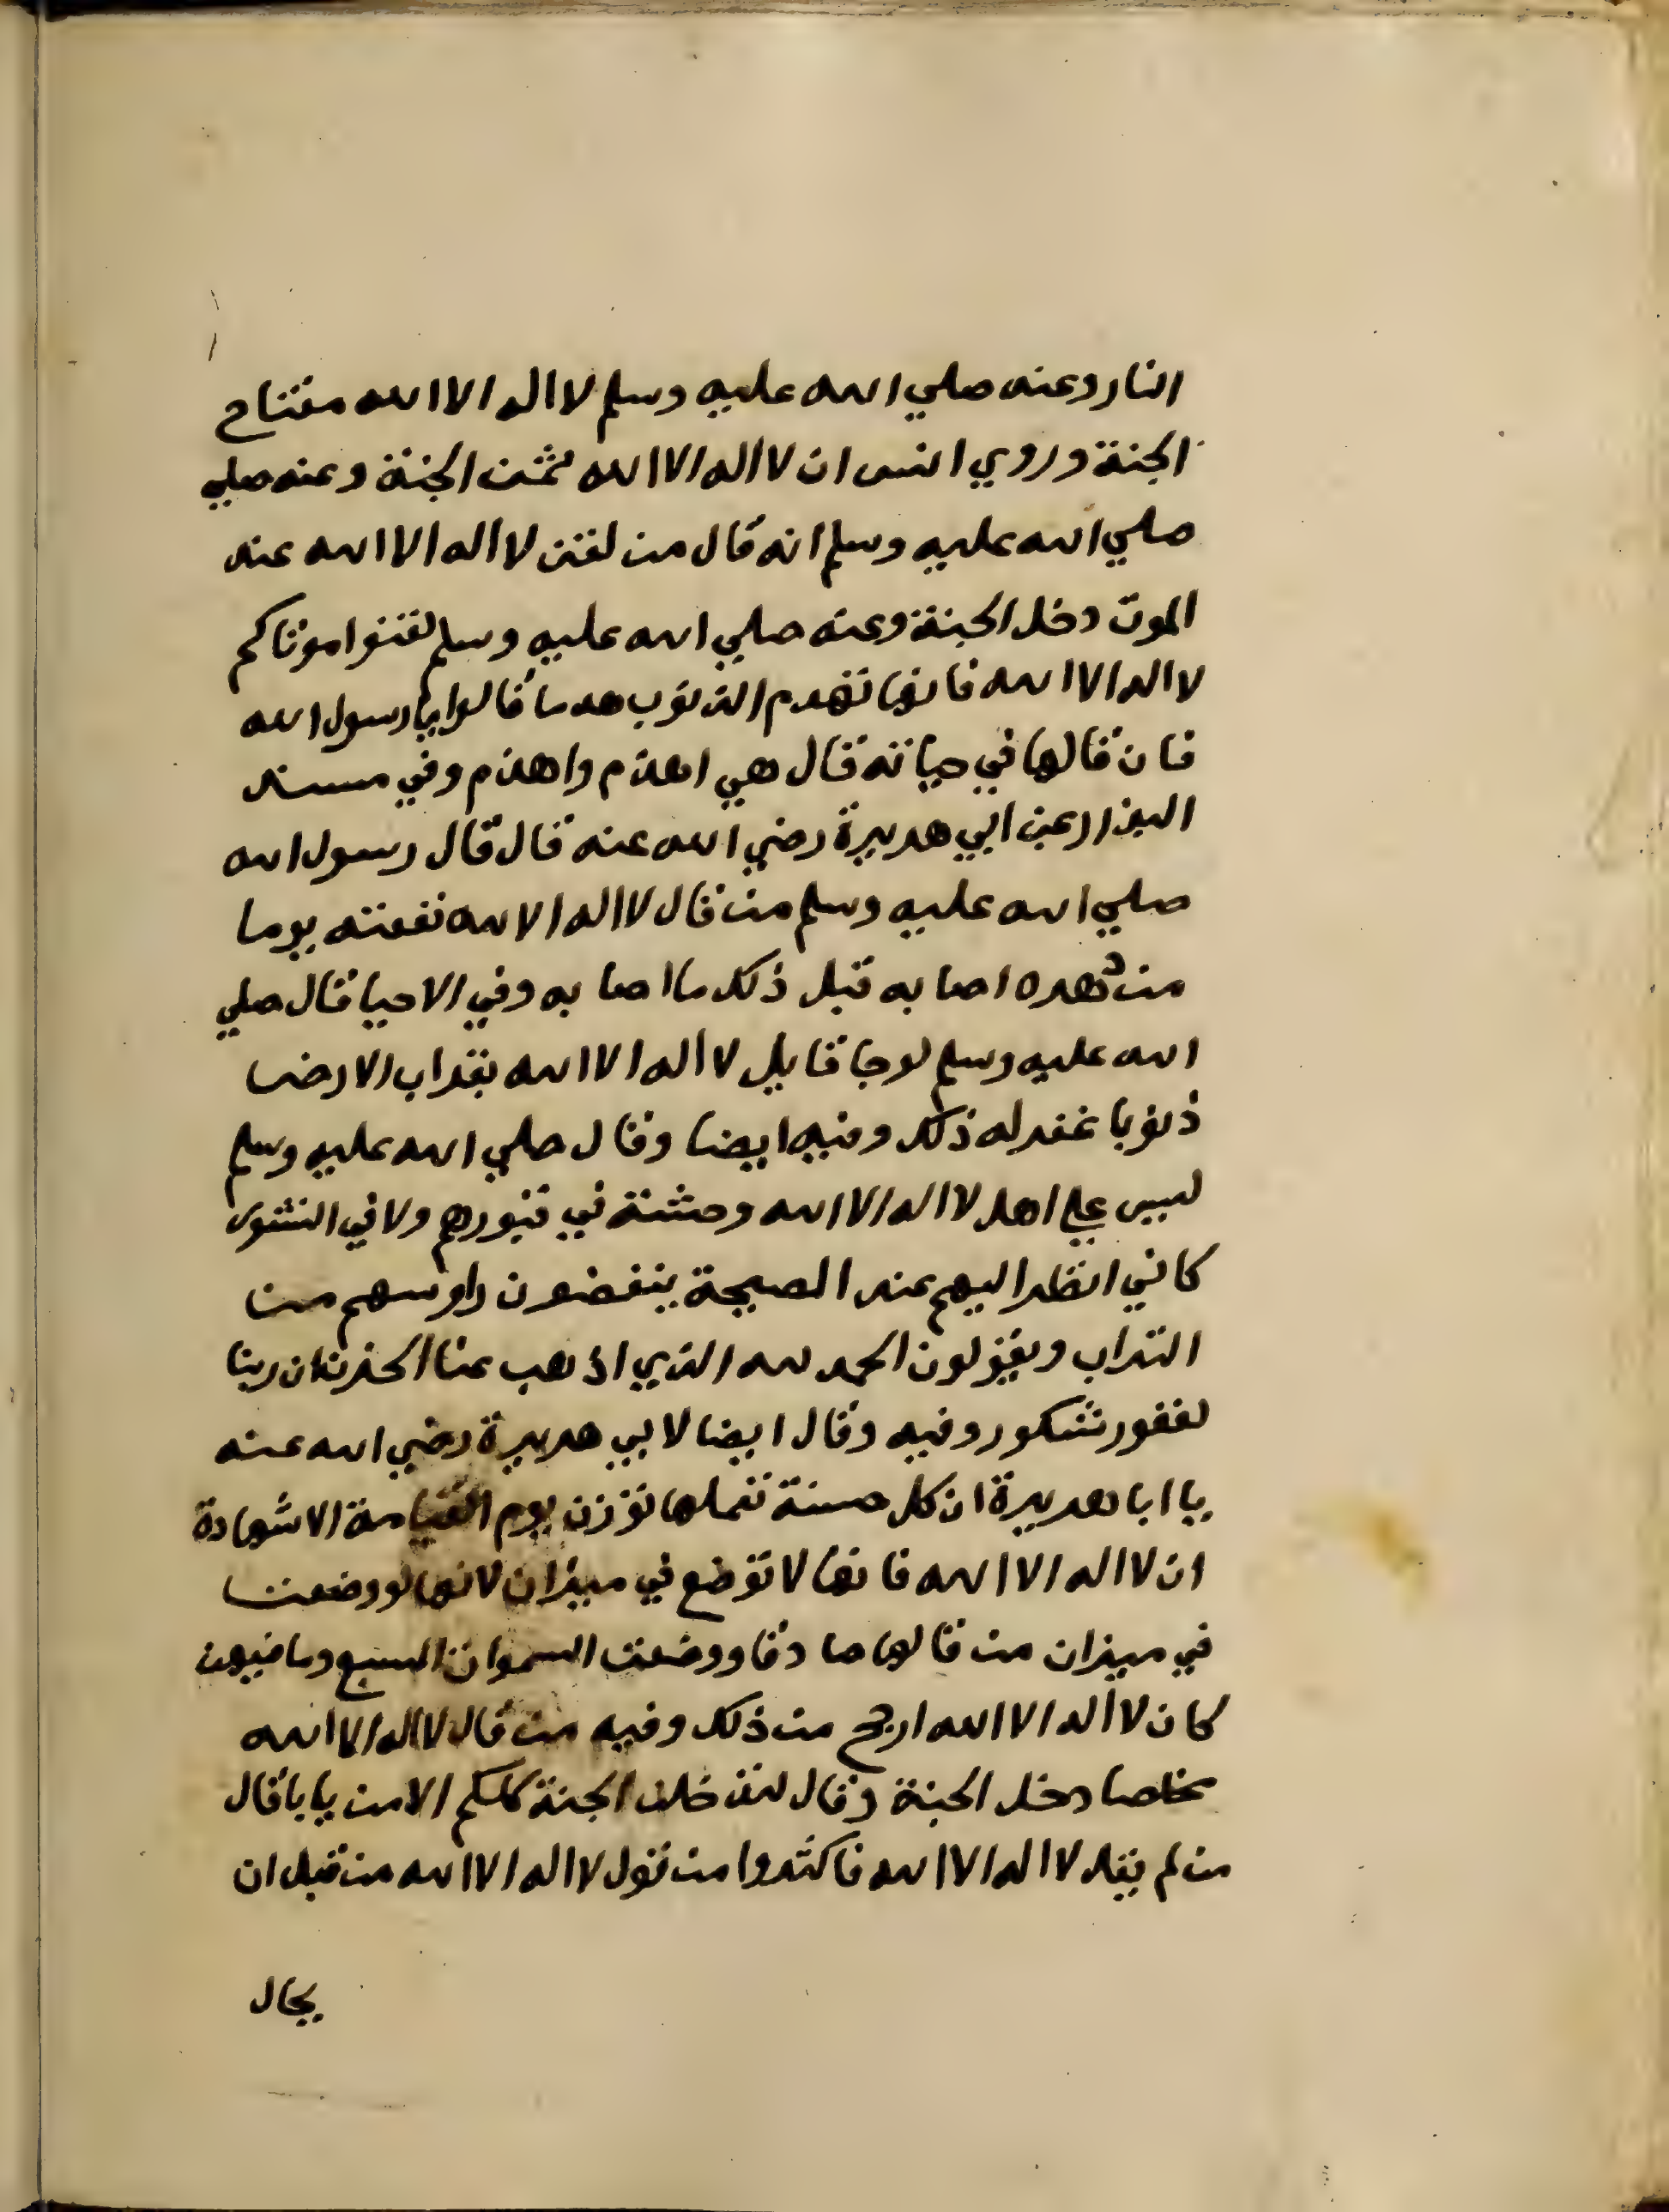 النار وعنه صلي الله عليه وسلم لا اله الا الله مفتاح
الجنة وروي انس ان لا اله الا الله ثمن الجنة وعنه صلي
صلي الله عليه وسلم انه قال من لقن لا اله الا الله عند
الموت دخل الجنة وعنه صلي الله عليه وسلم لقنوا موتاكم
لا اله الا الله فانها تهدم الذنوب هدما قالوا يا رسول الله
فان قالها في حياته قال هي اهدم واهدم وفي مسند
البزار عن ابي هريرة رضي الله عنه قال قال رسول الله
صلي الله عليه وسلم من قال لا اله الا الله نفعته يوما
من دهره اصابه قبل ذلك ما اصابه وفي الاحيا قال صلي
الله عليه وسلم لو جا قايل لا اله الا الله بقراب الارض
ذنوبا غفر له ذلك وفيه ايضا وقال صلي الله عليه وسلم
ليس علي اهل لا اله الا الله وحشة في قبورهم ولا في النشور
كاني انظر اليهم عند الصيحة ينفضون راوسهم من
التراب ويقولون الحمد لله الذي اذهب عنا الحزن ان ربنا
لغفور شكور وفيه وقال ايضا لابي هريرة رضي الله عنه
يا ابا هريرة ان كل حسنة تعملها توزن يوم القيامة الا شهادة
ان لا اله الا الله فانها لا توضع في ميزان لانها لو وضعت
في ميزان من قالها صادقا ووضعت السموات السبع وما فيهن
كان لا اله الا الله ارجح من ذلك وفيه من قال لا اله الا الله
مخلصا دخل الجنة وقال لتدخلن الجنة كلكم الا من يابا قال
من لم يقل لا اله الا الله فاكثروا من قول لا اله الا الله من قبل ان
يحال